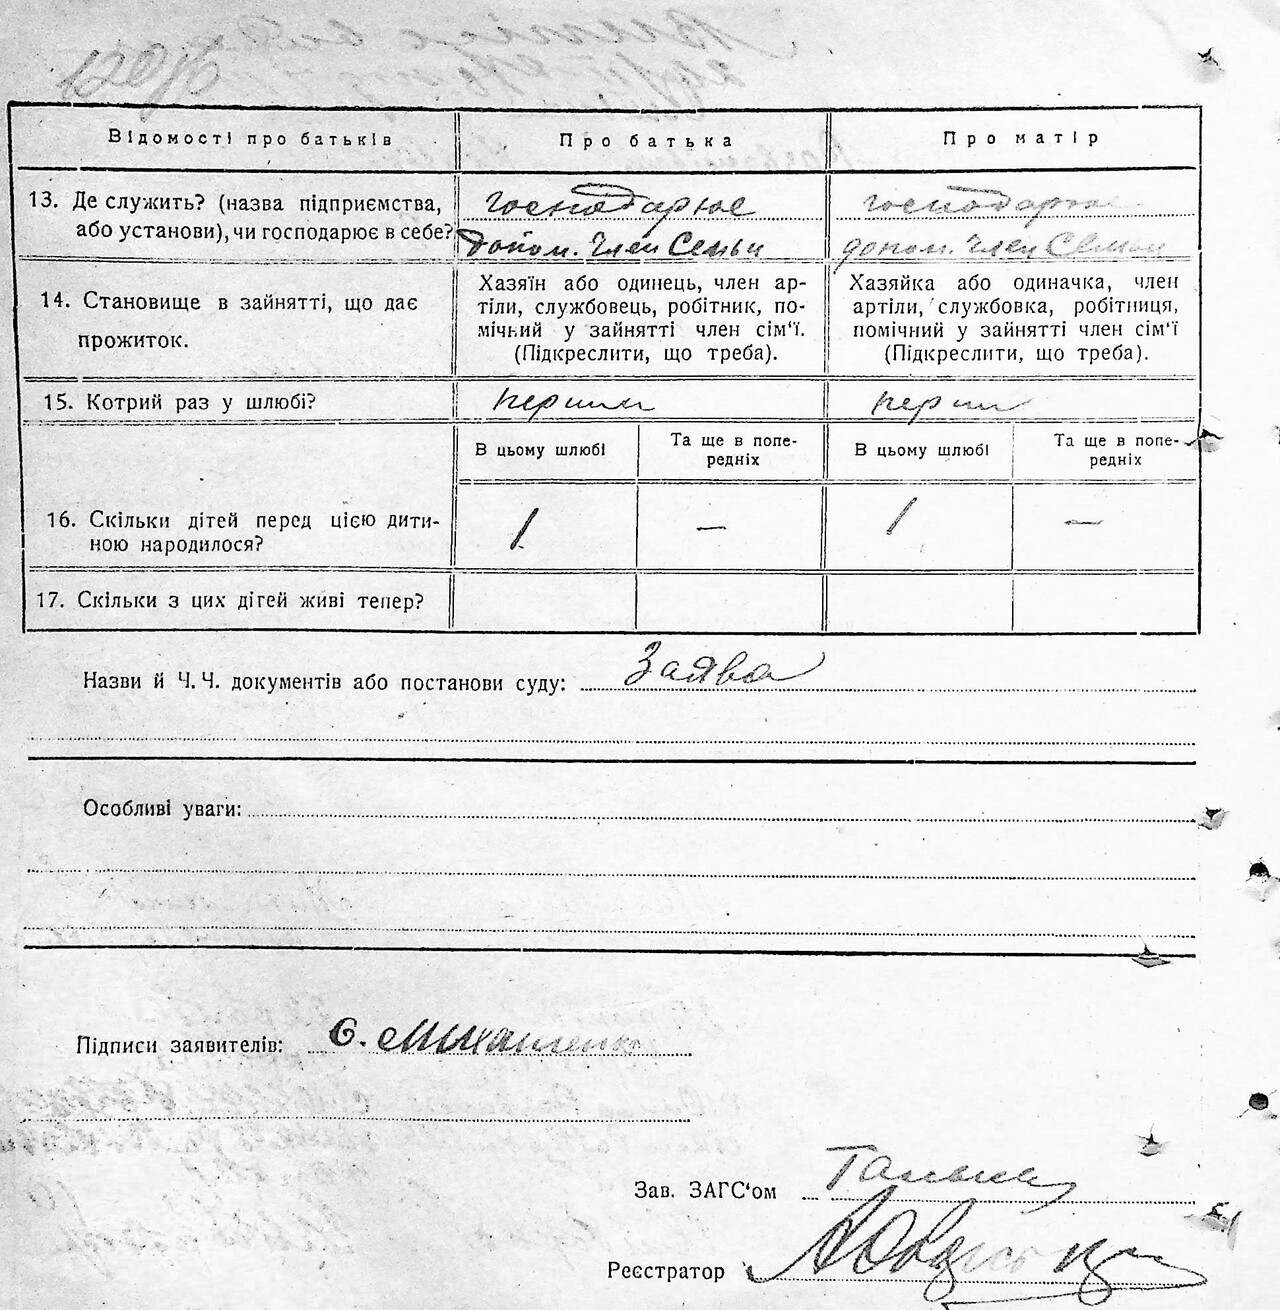 Відомості про батьків	Про батька	Про матір
13. Де служить? (назва підприємства, або установи), чи господарює в себе?
господарює	господарює
допом. член Семьи	допом. член Семьи
14. Становище в зайнятті, що дає
прожиток.
Хазяїн або одинець, член ар-
тіли, службовець, робітник, по-
мічний у зайнятті член сім'ї.
(Підкреслити, що треба).
Хазяйка або одиначка, член
артіли, службовка, робітниця,
помічний у зайнятті член сім'ї
(Підкреслити, що треба).
15. Котрий раз у шлюбі?	перший	перш
В цьому шлюбі	Та ще в попе-
редніх	В цьому шлюбі	Та ще в попе-
редніх
16. Скільки дітей перед цією дити-
ною народилося?
1	—	1	—
17. Скільки з цих дітей живі тепер?
Назви й Ч. Ч. документів або постанови суду: Заява
Особливі уваги:
Підписи заявителів: Є. Михайленко
Зав. ЗАГС'ом
Реєстратор